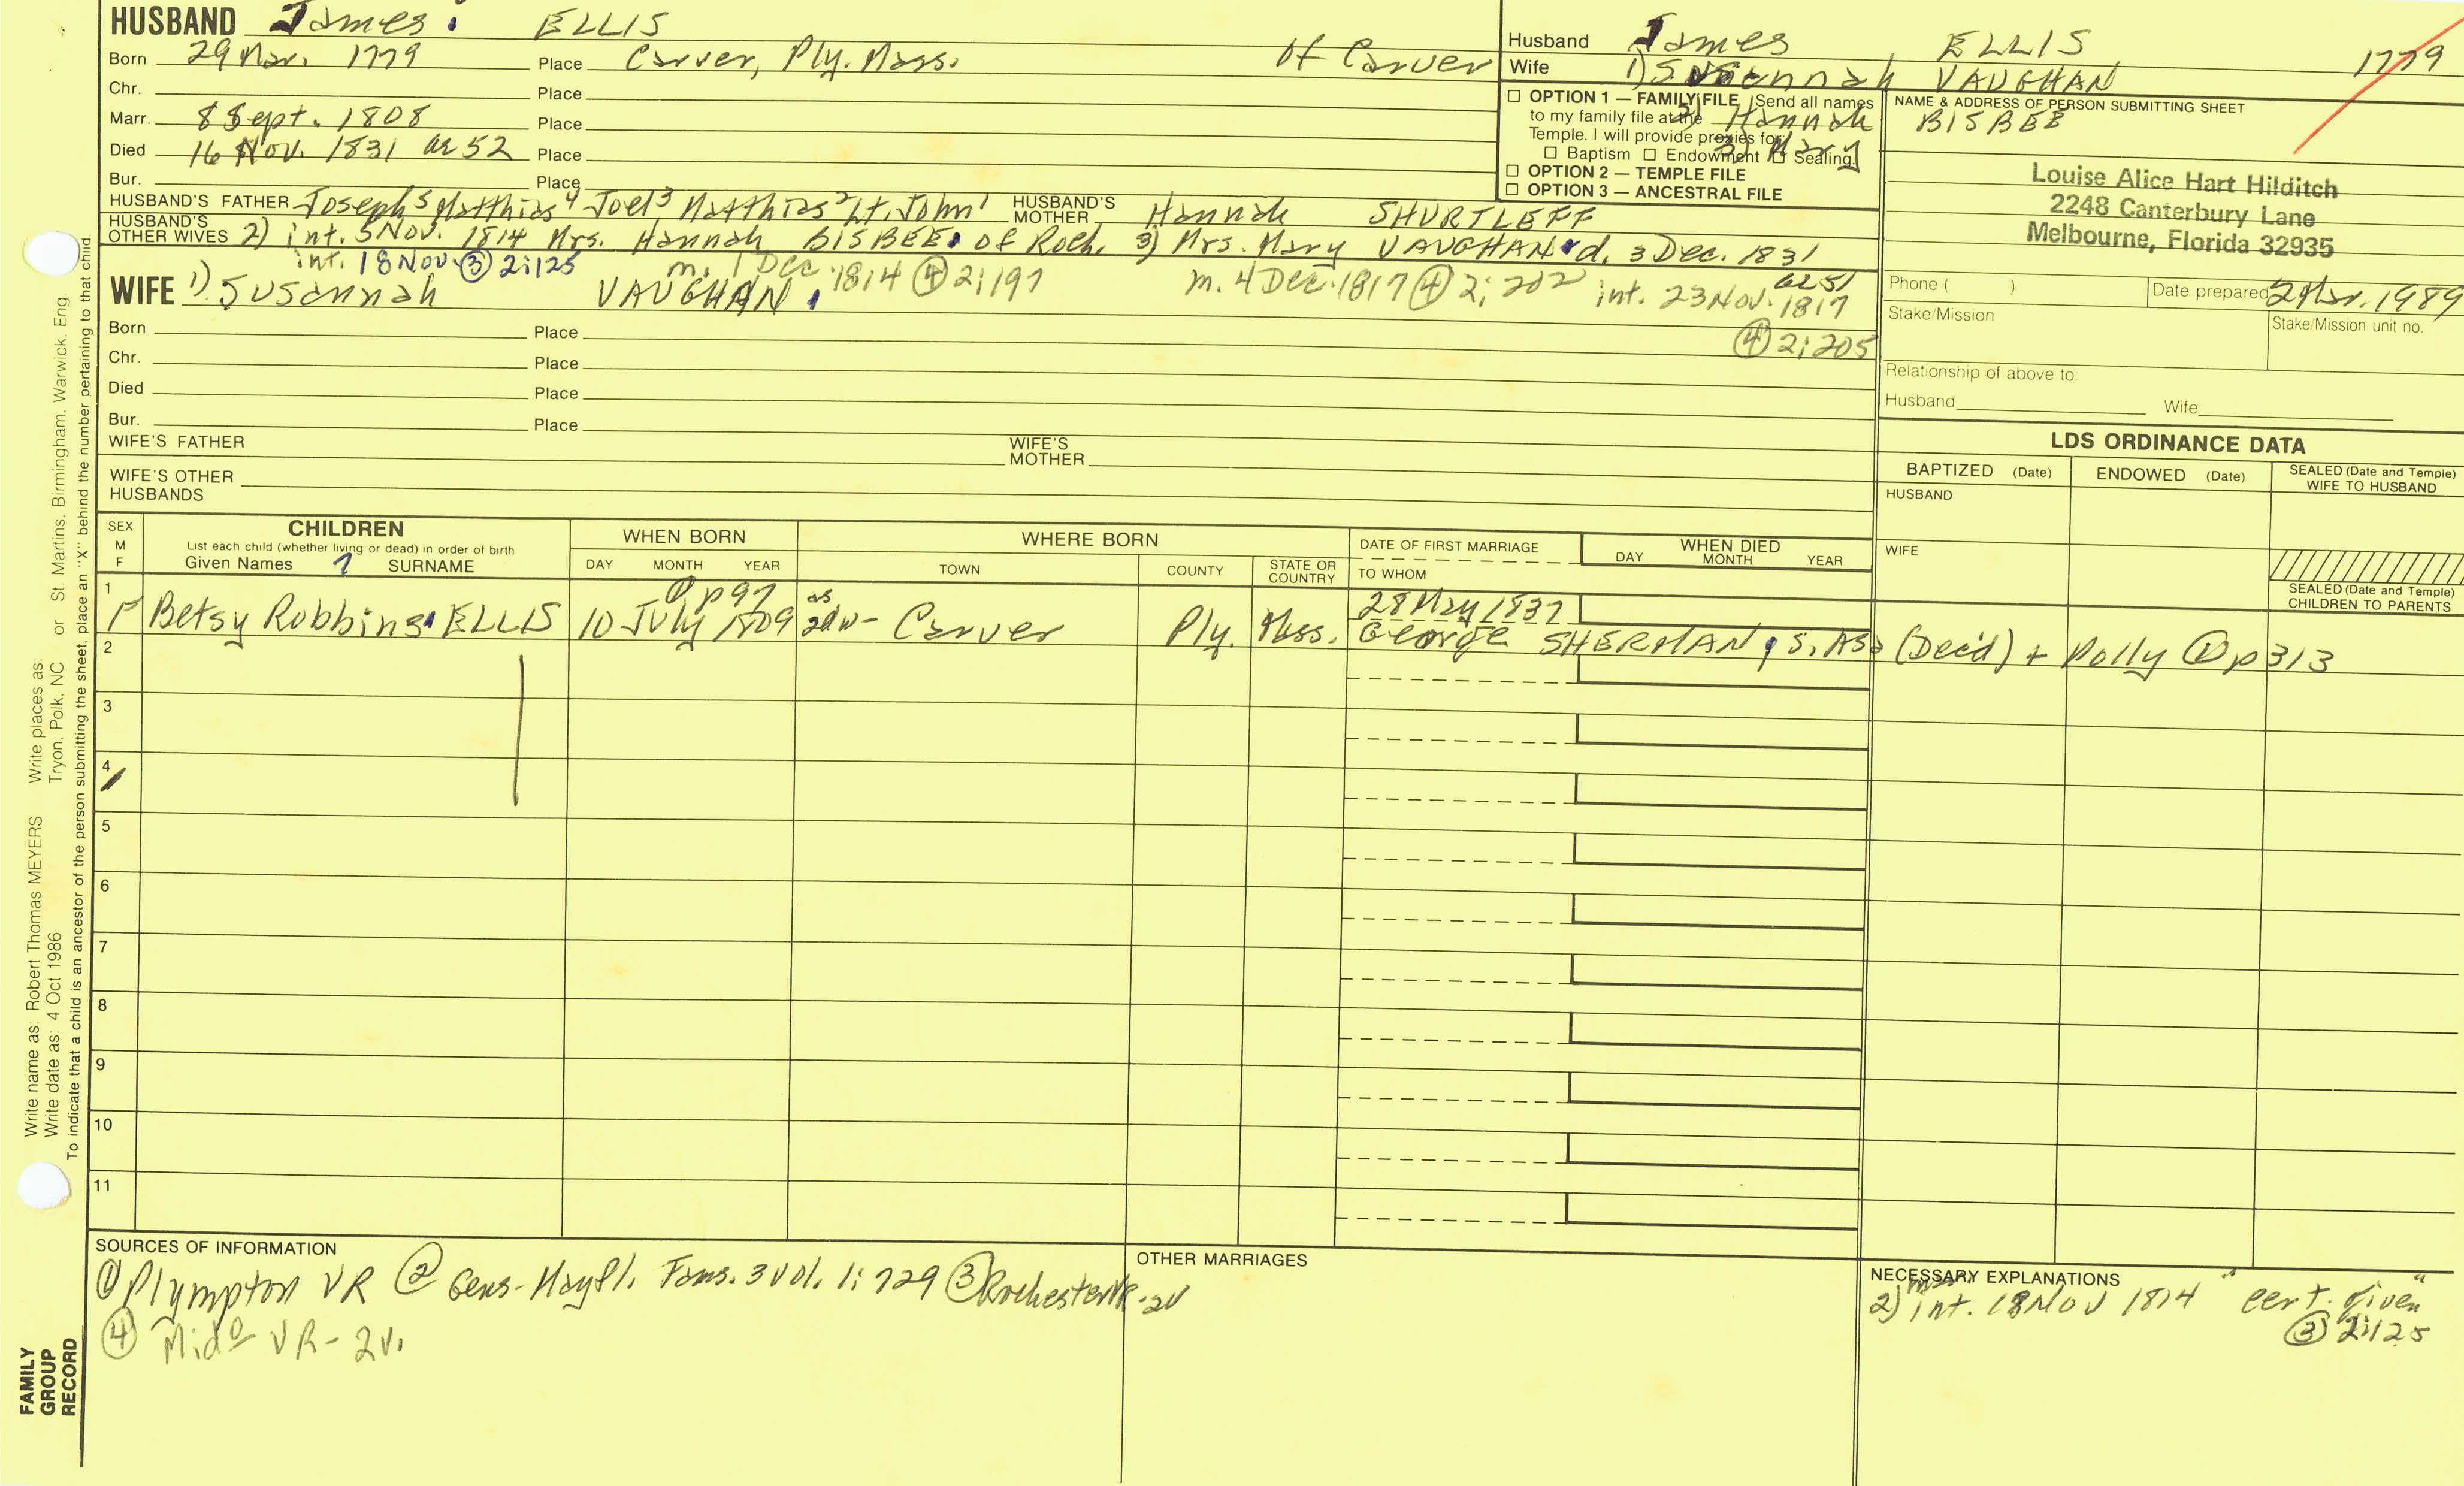 HUSBAND James ELLIS
Born 29 Mar. 1779 Place Carver, Ply. Mass. of Carver
Chr. Place
Marr. 8 Sept. 1808 Place
Died 16 Nov. 1831 ae 52 Place
Bur. Place
HUSBAND'S FATHER Joseph⁵ Matthias⁴ Joel³ Matthias² Lt. John¹ HUSBAND'S MOTHER Hannah SHURTLEFF
HUSBAND'S OTHER WIVES 2) int. 5 Nov. 1814 Mrs. Hannah BISBEE of Roch. 3) Mrs. Mary VAUGHAN d. 3 Dec. 1831
int. 18 Nov. ③ 2:125 m. 1 Dec. 1814 ④ 2:197 m. 4 Dec. 1817 ④ 2:202 int. 23 Nov. 1817 ae 51
④ 2:205
WIFE 1) Susannah VAUGHAN
Born Place
Chr. Place
Died Place
Bur. Place
WIFE'S FATHER WIFE'S MOTHER
WIFE'S OTHER HUSBANDS
Husband James ELLIS 1779
Wife 1) Susannah VAUGHAN
2) Hannah BISBEE
3) Mary
☐ OPTION 1 — FAMILY FILE (Send all names
to my family file at the
Temple. I will provide proxies for
☐ Baptism ☐ Endowment ☐ Sealing)
☐ OPTION 2 — TEMPLE FILE
☐ OPTION 3 — ANCESTRAL FILE
NAME & ADDRESS OF PERSON SUBMITTING SHEET
Louise Alice Hart Hilditch
2248 Canterbury Lane
Melbourne, Florida 32935
Phone ( ) Date prepared 2 Mar. 1989
Stake/Mission Stake/Mission unit no.
Relationship of above to:
Husband Wife
LDS ORDINANCE DATA
BAPTIZED (Date) ENDOWED (Date) SEALED (Date and Temple) WIFE TO HUSBAND
HUSBAND
WIFE
SEALED (Date and Temple) CHILDREN TO PARENTS
SEX M F
CHILDREN
List each child (whether living or dead) in order of birth
Given Names SURNAME
WHEN BORN
DAY MONTH YEAR
WHERE BORN
TOWN COUNTY STATE OR COUNTRY
DATE OF FIRST MARRIAGE
TO WHOM
WHEN DIED
DAY MONTH YEAR
① p 97
1 F Betsy Robbins ELLIS 10 July 1809 Carver Ply. Mass. 28 May 1837
George SHERMAN, s. Asa (Dec'd) + Polly ① p 313
2
3
4
5
6
7
8
9
10
11
SOURCES OF INFORMATION
① Plympton VR ② Gens-Mayfl. Fams. 3 vol. 1:729 ③ Rochester VR-2v
④ Mido VR-2v.
OTHER MARRIAGES
NECESSARY EXPLANATIONS
2) int. 18 Nov 1814 "cert. given"
③ 2:125
Write name as: Robert Thomas MEYERS Write places as: Tryon, Polk, NC or St. Martins, Birmingham, Warwick, Eng.
Write date as: 4 Oct 1986
To indicate that a child is an ancestor of the person submitting the sheet, place an "X" behind the number pertaining to that child.
FAMILY
GROUP
RECORD